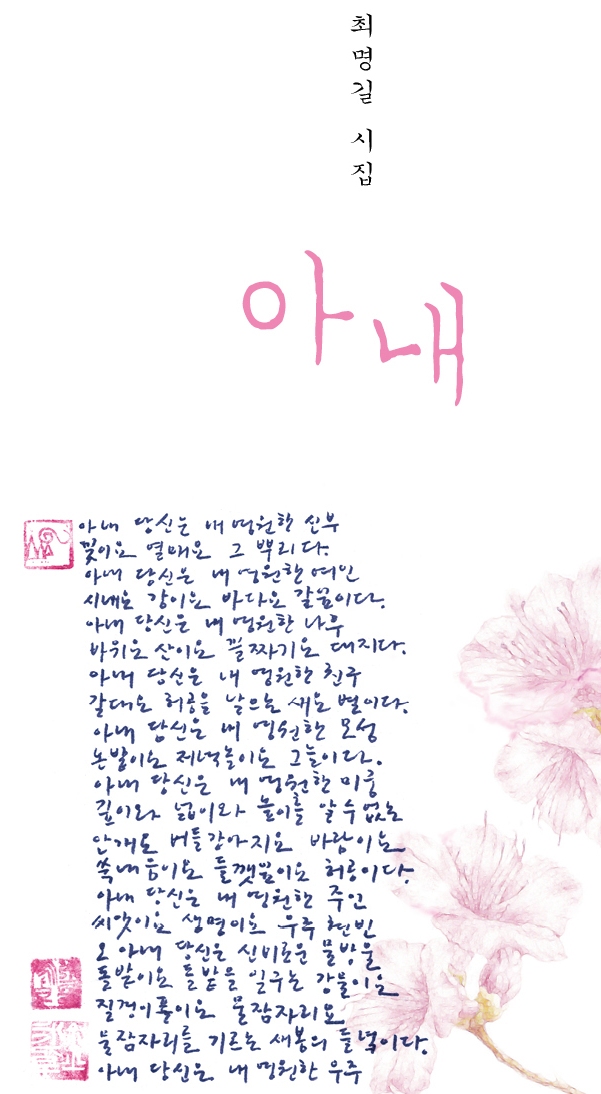 최명길 시집
아내
아내 당신은 내 영원한 신부
꽃이요 열매요 그 뿌리다.
아내 당신은 내 영원한 여인
시내요 강이요 바다요 갈꽃이다.
아내 당신은 내 영원한 나무
바위요 산이요 골짜기요 대지다.
아내 당신은 내 영원한 친구
갈대요 허공을 날으는 새요 별이다.
아내 당신은 내 영원한 모성
논밭이요 저녁놀이요 그늘이다.
아내 당신은 내 영원한 미궁
깊이와 넓이와 높이를 알 수 없는
안개요 버들강아지요 바람이요
쑥내음이요 들깻잎이요 허공이다.
아내 당신은 내 영원한 주인
씨앗이요 생명이요 우주 현빈
오 아내 당신은 신비로운 물방울
돌밭이요 돌밭을 일구는 강물이요
질경이풀이요 물잠자리요
물잠자리를 기르는 새봄의 들녘이다.
아내 당신은 내 영원한 우주